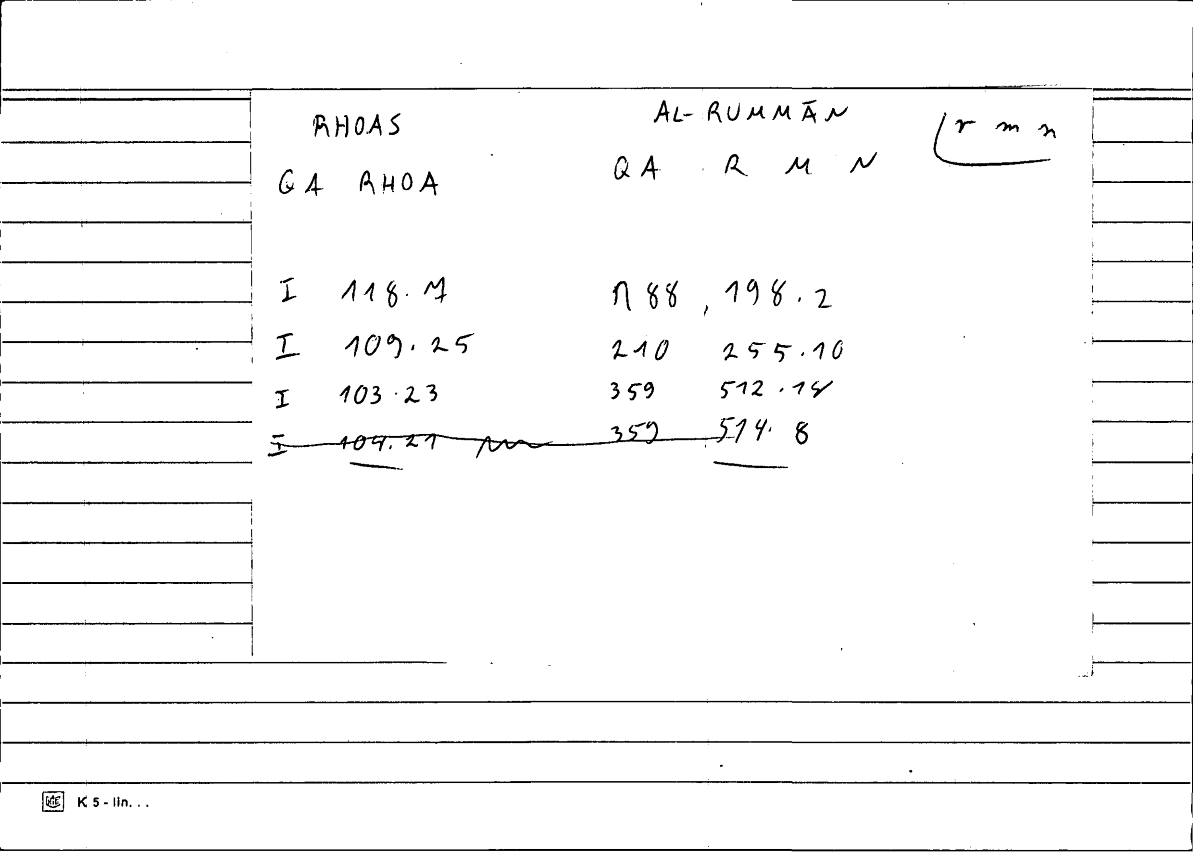 RHOAS AL-RUMMĀN r m n
QA RHOA QA R M N
I 118.7 N 88, 198.2
I 109.25 210 255.10
I 103.23 359 512.18
I 104.21 359 514.8
K 5 - lin. . .